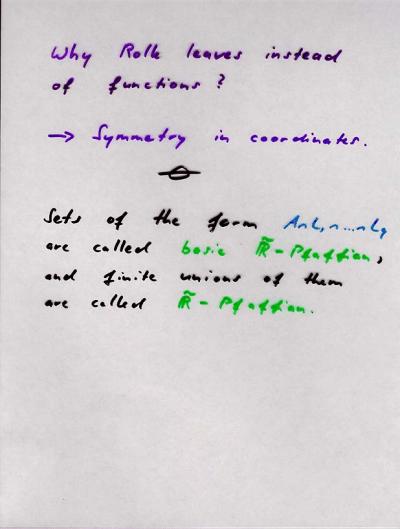 Why Rolle leaves instead
of functions?
→ Symmetry in coordinates.
Sets of the form A∩L₁∩...∩L_q
are called basic R̃-Pfaffian,
and finite unions of them
are called R̃-Pfaffian.